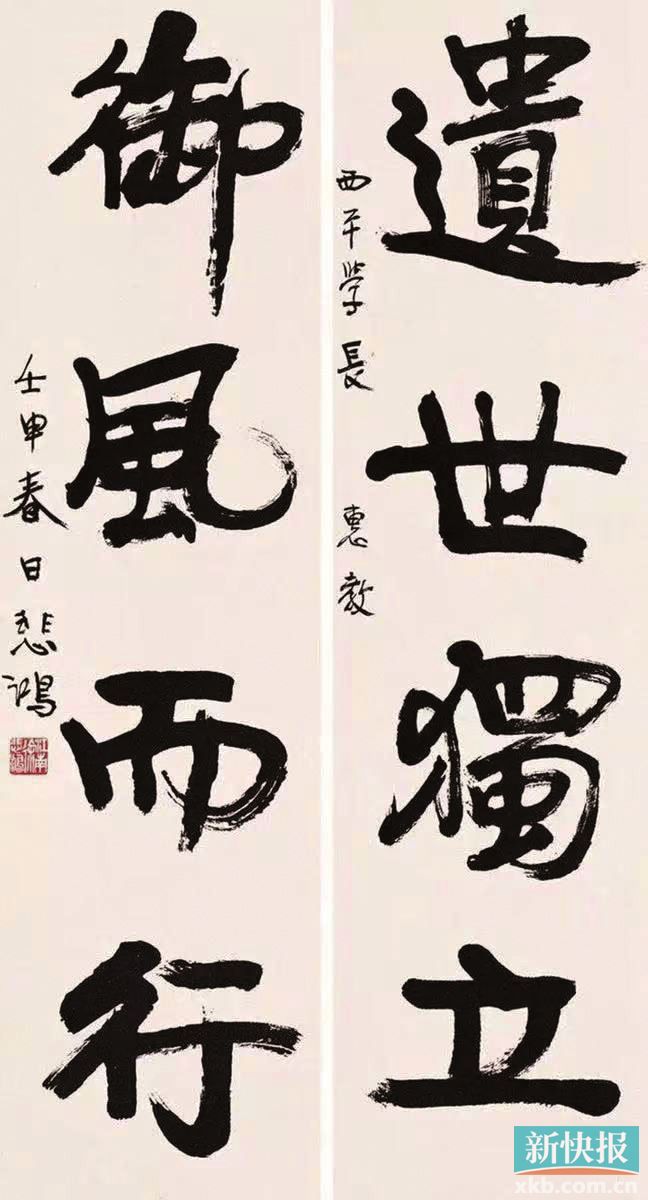 遺世獨立
西平學長 惠教
御風而行
壬申春日悲鴻
新快报
xkb.com.cn